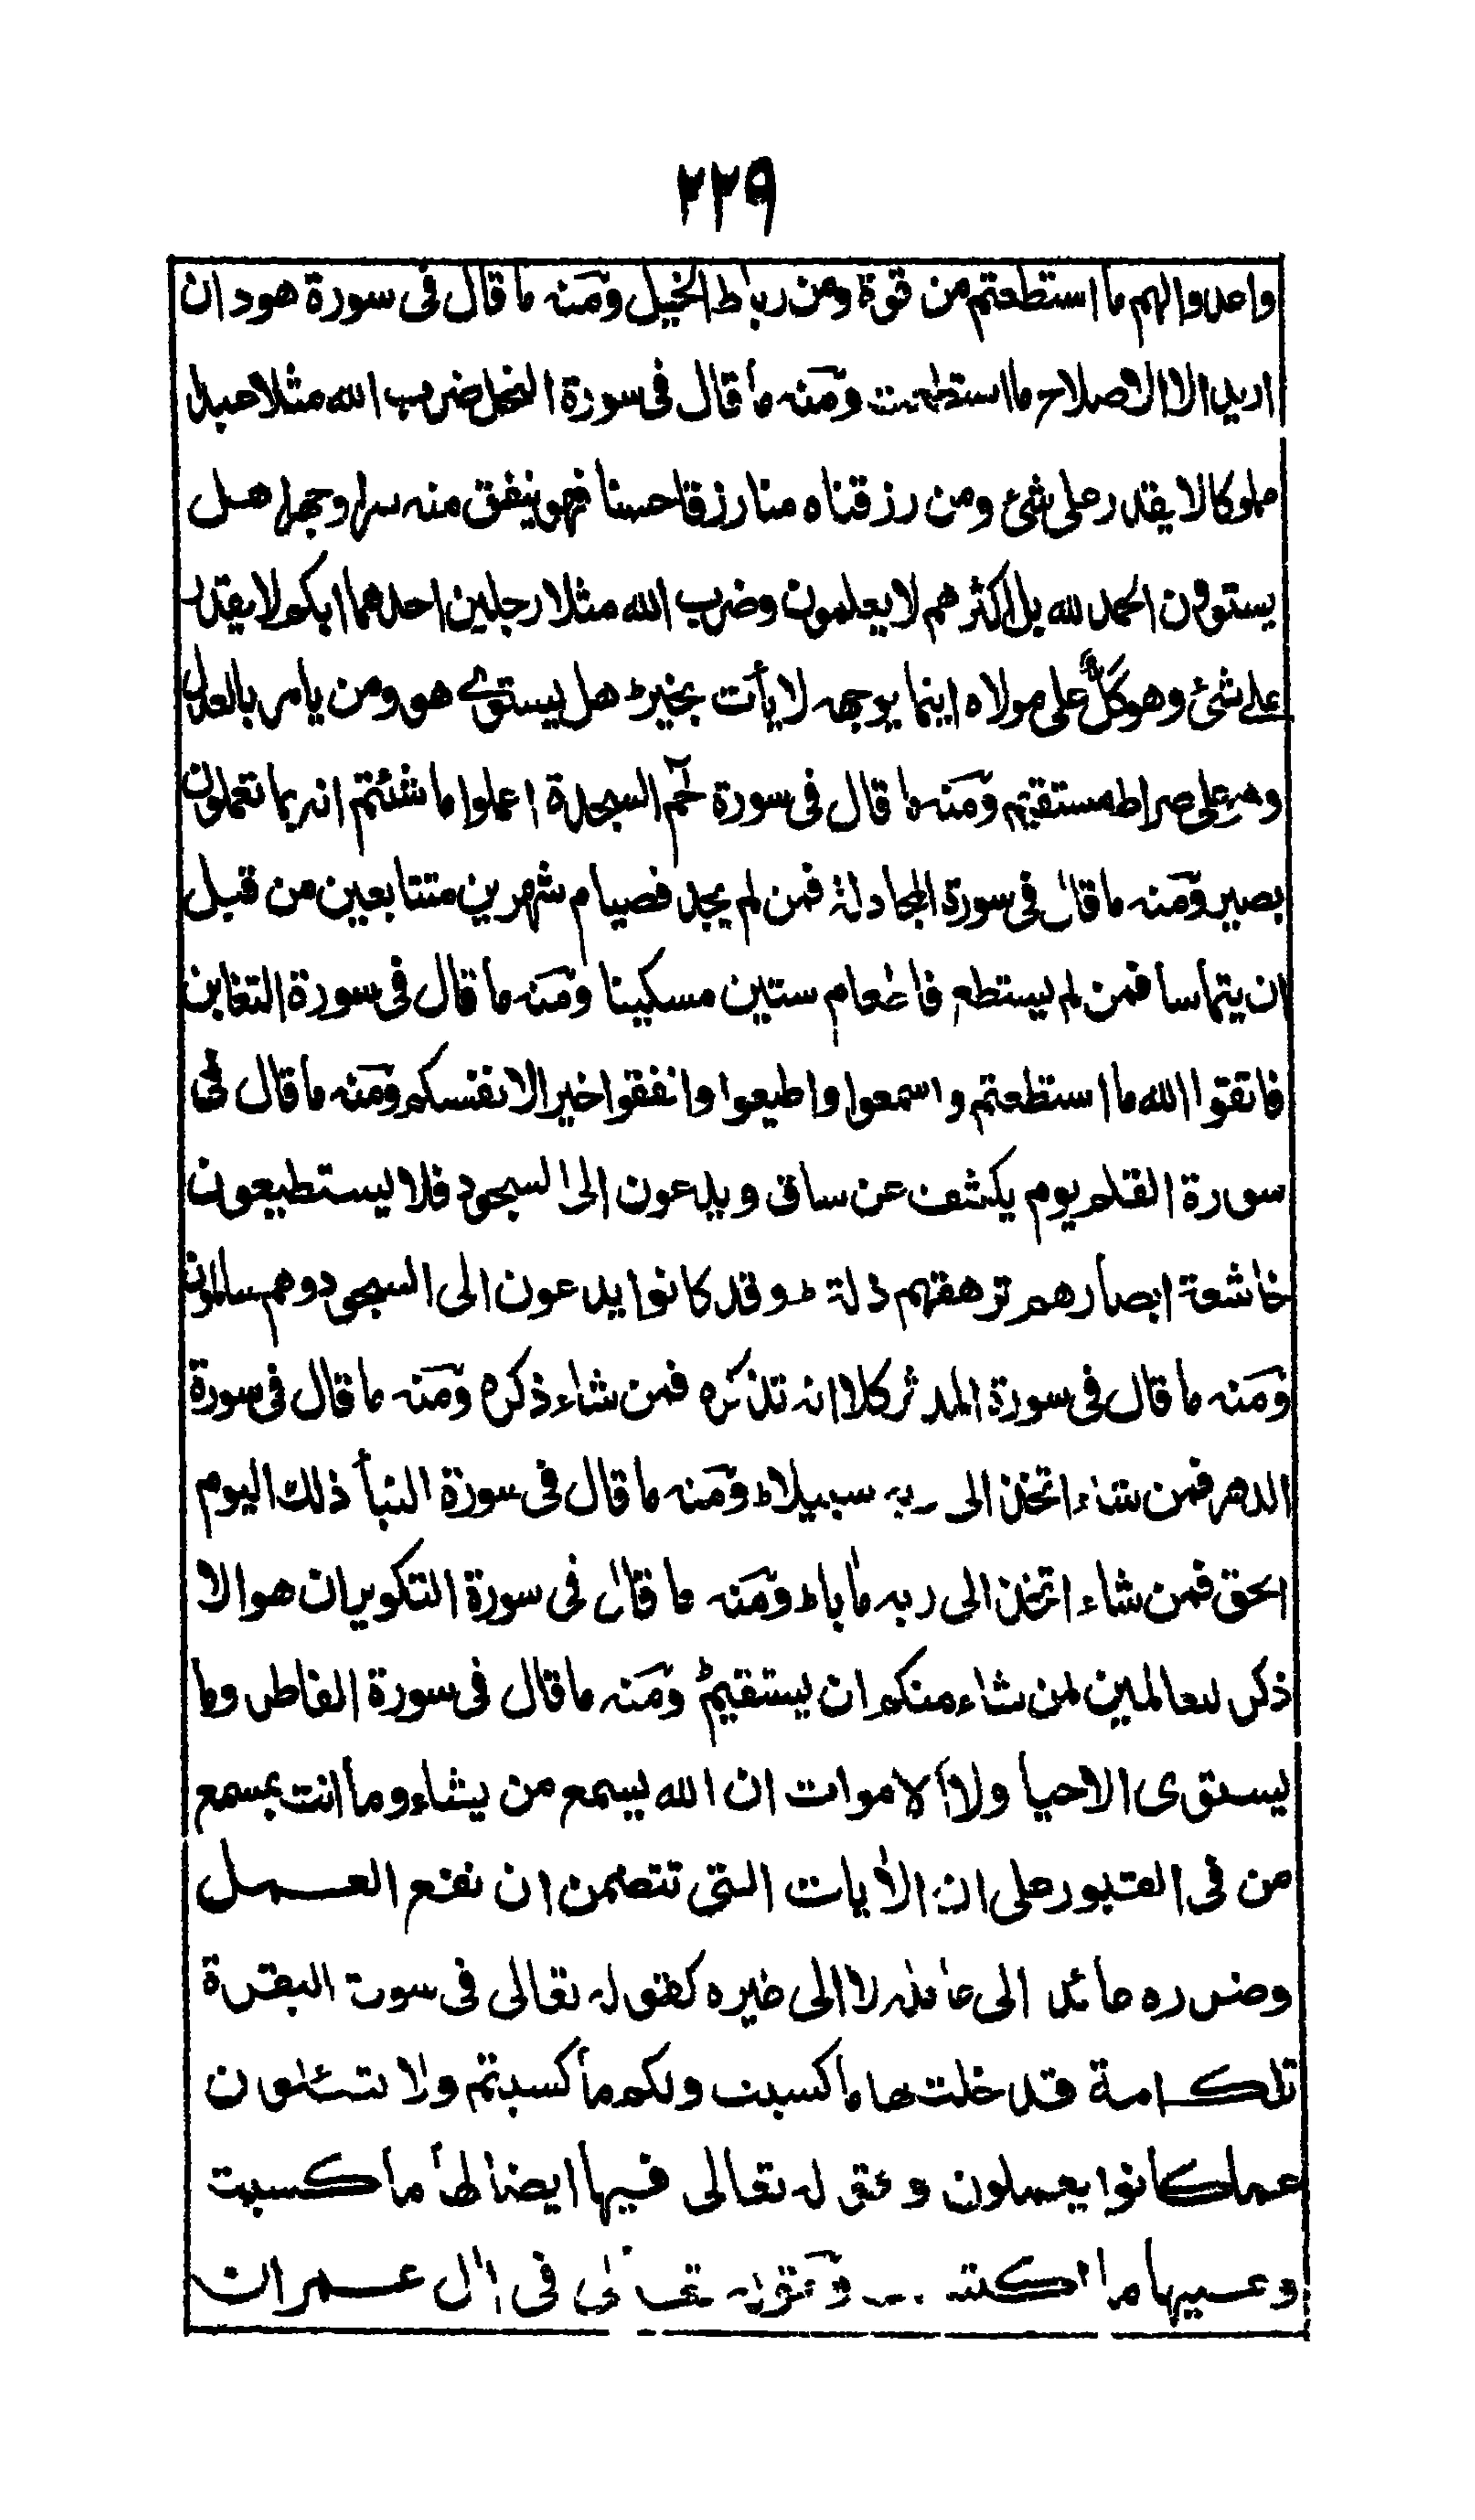 ٢٢٩
واعدوا لهم ما استطعتم من قوة ومن رباط الخيل ومنه ما قال فى سورة هود ان
اريد الا الاصلاح ما استطعت ومنه ما قال فى سورة النحل ضرب الله مثلا عبدا
مملوكا لا يقدر على شئ ومن رزقناه منا رزقا حسنا فهو ينفق منه سرا وجهرا هل
يستوون الحمد لله بل اكثرهم لا يعلمون وضرب الله مثلا رجلين احدهما ابكم لا يقدر
على شئ وهو كلٌّ على مولاه اينما يوجهه لا يأت بخير ط هل يستوى هو ومن يامر بالعدل
وهو على صراط مستقيم ومنه ما قال فى سورة حٓم السجدة اعملوا ما شئتم انه بما تعملون
بصير ومنه ما قال فى سورة المجادلة فمن لم يجد فصيام شهرين متتابعين من قبل
ان يتماسا فمن لم يستطع فاطعام ستين مسكينا ومنه ما قال فى سورة التغابن
فاتقوا الله ما استطعتم واسمعوا واطيعوا وانفقوا خيرا لانفسكم ومنه ما قال فى
سورة القلم يوم يكشف عن ساق ويدعون الى السجود فلا يستطيعون
خاشعة ابصارهم ترهقهم ذلة ط وقد كانوا يدعون الى السجود وهم سالمون
ومنه ما قال فى سورة المدثر كلا انه تذكره فمن شاء ذكره ومنه ما قال فى سورة
الدهر فمن شاء اتخذ الى ربه سبيلا ط ومنه ما قال فى سورة النبأ ذلك اليوم
الحق فمن شاء اتخذ الى ربه مابا ط ومنه ما قال فى سورة التكوير ان هو الا
ذكر للعالمين لمن شاء منكم ان يستقيم ط ومنه ما قال فى سورة الفاطر وما
يستوى الاحيا ولا الاموات ان الله يسمع من يشاء وما انت بمسمع
من فى القبور على ان الايات التى تتضمن ان نفع العمل
وضرره عائد الى عامله لا الى غيره كقوله تعالى فى سورت البقرة
تلك امة قد خلت لها ما كسبت ولكم ما كسبتم ولا تسئلون
عما كانوا يعملون وقوله تعالى فيها ايضا لها ما كسبت
وعليها ما اكتسبت وقوله تعالى فى ال عمران